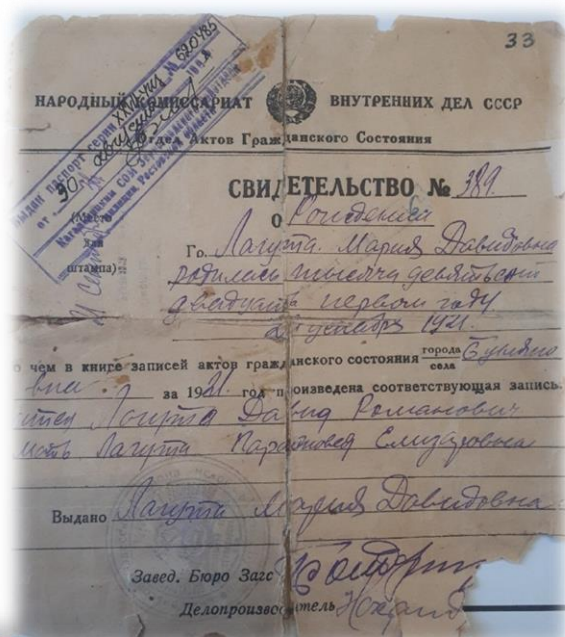 33
НАРОДНЫЙ КОМИССАРИАТ ВНУТРЕННИХ ДЕЛ СССР
Отдел Актов Гражданского Состояния
Выдан паспорт серии № 620485
от 30 августа
милиции Ростовской области
(Место для штампа)
СВИДЕТЕЛЬСТВО № 389
О Рождении
Гр. Лагута Мария Давидовна
родилась тысяча девятьсот
двадцать первом году
1921.
о чем в книге записей актов гражданского состояния города села
за 1921 год произведена соответствующая запись.
отец Лагута Давид Романович
мать Лагута Елизаровна
Выдано Лагута Мария Давидовна
Завед. Бюро Загс
Делопроизводитель